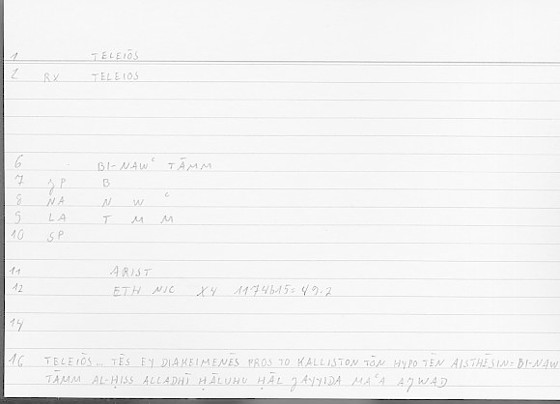 1 TELEIŌS
2 RX TELEIOS
6 BI-NAWʿ TĀMM
7 gP B
8 NA N W ʿ
9 LA T M M
10 gP
11 ARIST
12 ETH NIC X4 1174b15 = 49.2
14
16 TELEIŌS .. TĒS EY DIAKEIMENĒS PROS TO KALLISTON TŌN HYPO TĒN AISTHĒSIN = BI-NAW
TĀMM AL-ḤISS ALLADHĪ ḤĀLUHU ḤĀL ǦAYYIDA MAʿA AǦWAD